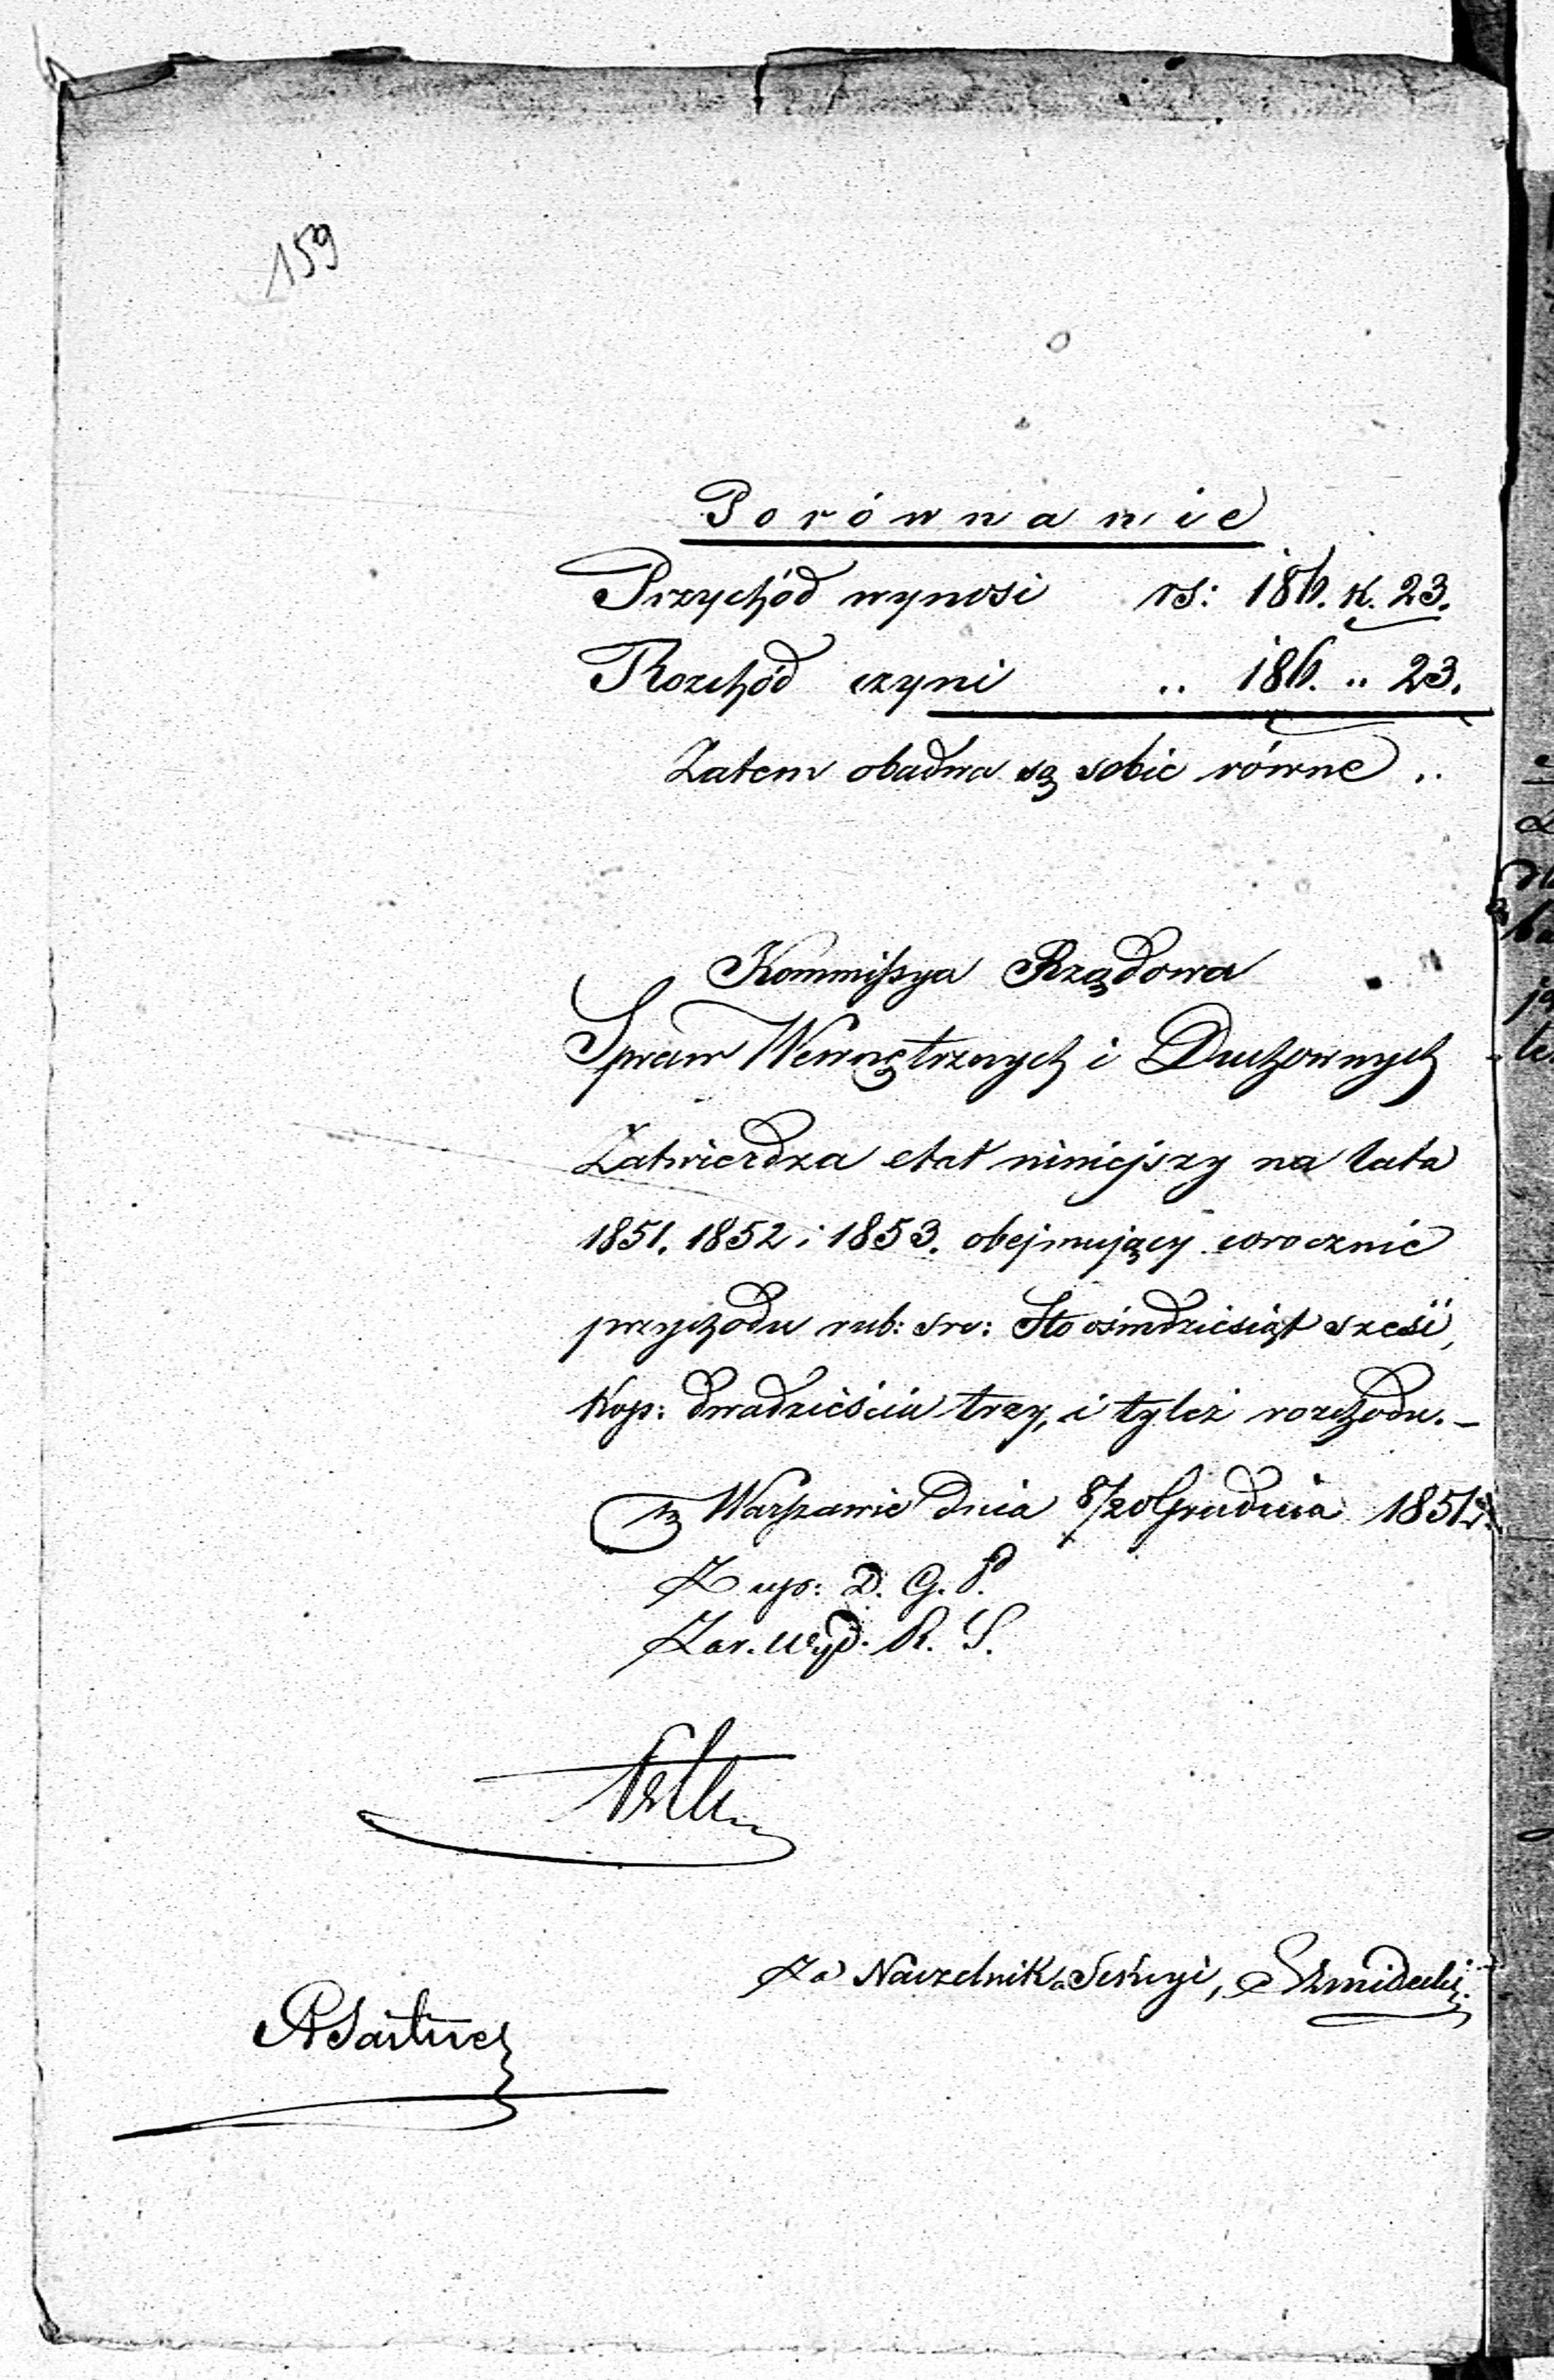 159
Porównanie
Przychód wynosi rs: 186. k. 23.
Rozchód czyni „ 186. „ 23.
Zatem obadwa są sobie równe „
Kommissya Rządowa
Spraw Wewnętrznych i Duchownych
Zatwierdza etat niniejszy na lata
1851. 1852 i 1853. obejmujący corocznie
przychodu rub: sre: Sto ośmdziesiąt sześć,
kop: dwadzieścia trzy, i tyleż rozchodu. –
w Warszawie dnia 8/20 Grudnia 1851 r.
Z up: D. G. P.
Zar. Wyd. R. S.
Za Naczelnika Sekcyi,